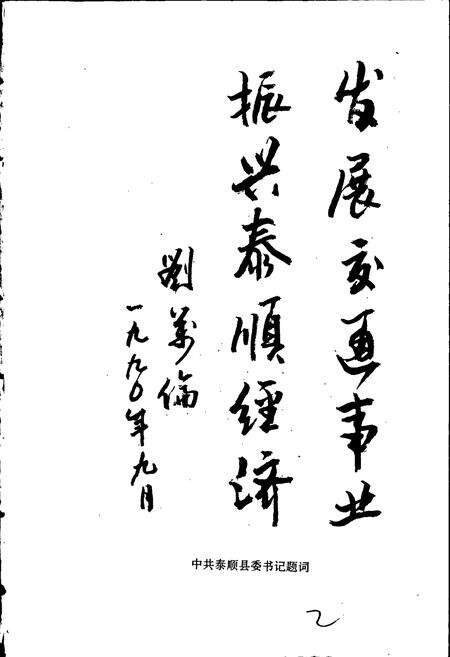 发展交通事业
振兴泰顺经济
劉萬倫
一九九〇年九月
中共泰顺县委书记题词